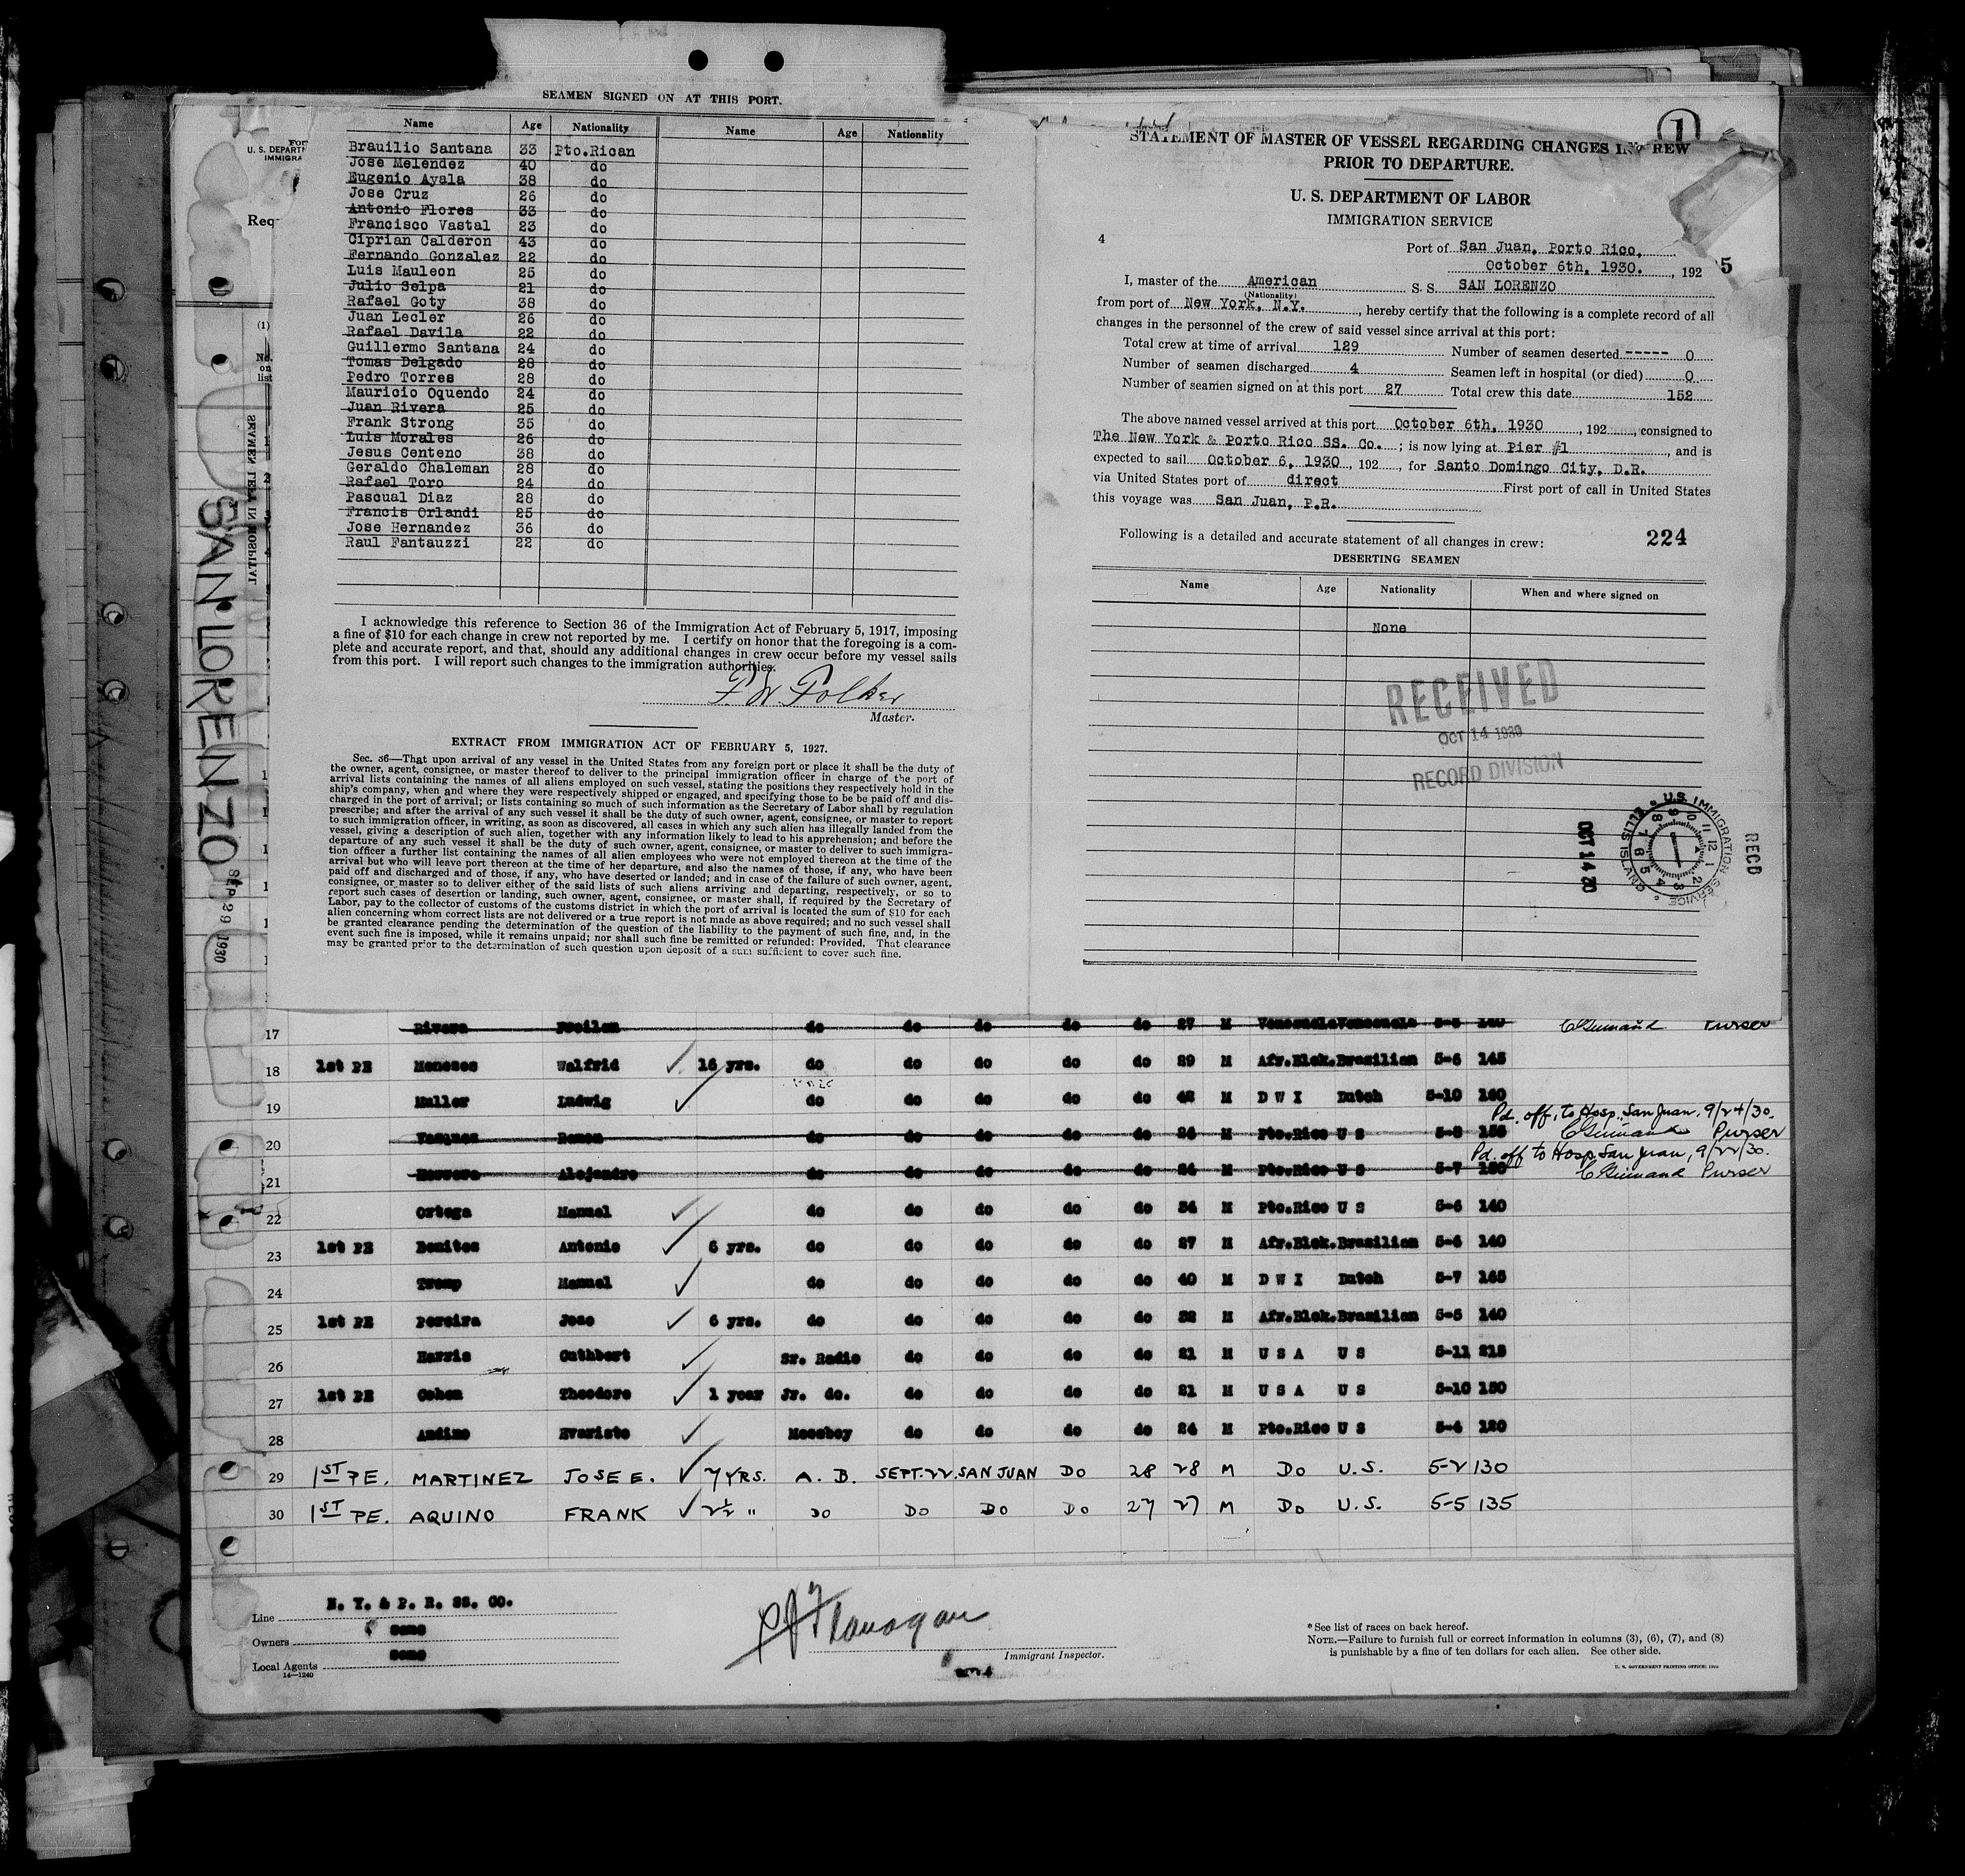 SEAMEN SIGNED ON AT THIS PORT.
Name Age Nationality Name Age Nationality
Brauilio Santana 33 Pto.Rican
Jose Melendez 40 do
Eugenio Ayala 38 do
Jose Cruz 26 do
Antonio Flores 33 do
Francisco Vastal 23 do
Ciprian Calderon 43 do
Fernando Gonzalez 22 do
Luis Mauleon 25 do
Julio Selpa 21 do
Rafael Goty 38 do
Juan Lecler 26 do
Rafael Davila 22 do
Guillermo Santana 24 do
Tomas Delgado 28 do
Pedro Torres 28 do
Mauricio Oquendo 24 do
Juan Rivera 25 do
Frank Strong 35 do
Luis Morales 26 do
Jesus Centeno 38 do
Geraldo Chaleman 28 do
Rafael Toro 24 do
Pascual Diaz 28 do
Francis Orlandi 25 do
Jose Hernandez 36 do
Raul Fantauzzi 22 do
I acknowledge this reference to Section 36 of the Immigration Act of February 5, 1917, imposing
a fine of $10 for each change in crew not reported by me. I certify on honor that the foregoing is a com-
plete and accurate report, and that, should any additional changes in crew occur before my vessel sails
from this port. I will report such changes to the immigration authorities.
Master.
EXTRACT FROM IMMIGRATION ACT OF FEBRUARY 5, 1927.
Sec. 36—That upon arrival of any vessel in the United States from any foreign port or place it shall be the duty of
the owner, agent, consignee, or master thereof to deliver to the principal immigration officer in charge of the port of
arrival lists containing the names of all aliens employed on such vessel, stating the positions they respectively hold in the
ship's company, when and where they were respectively shipped or engaged, and specifying those to be be paid off and dis-
charged in the port of arrival; or lists containing so much of such information as the Secretary of Labor shall by regulation
prescribe; and after the arrival of any such vessel it shall be the duty of such owner, agent, consignee, or master to report
to such immigration officer, in writing, as soon as discovered, all cases in which any such alien has illegally landed from the
vessel, giving a description of such alien, together with any information likely to lead to his apprehension; and before the
departure of any such vessel it shall be the duty of such owner, agent, consignee, or master to deliver to such immigra-
tion officer a further list containing the names of all alien employees who were not employed thereon at the time of the
arrival but who will leave port thereon at the time of her departure, and also the names of those, if any, who have been
paid off and discharged and of those, if any, who have deserted or landed; and in case of the failure of such owner, agent,
consignee, or master so to deliver either of the said lists of such aliens arriving and departing, respectively, or so to
report such cases of desertion or landing, such owner, agent, consignee, or master shall, if required by the Secretary of
Labor, pay to the collector of customs of the customs district in which the port of arrival is located the sum of $10 for each
alien concerning whom correct lists are not delivered or a true report is not made as above required; and no such vessel shall
be granted clearance pending the determination of the question of the liability to the payment of such fine, and, in the
event such fine is imposed, while it remains unpaid; nor shall such fine be remitted or refunded: Provided, That clearance
may be granted prior to the determination of such question upon deposit of a sum sufficient to cover such fine.
1
STATEMENT OF MASTER OF VESSEL REGARDING CHANGES IN REW
PRIOR TO DEPARTURE.
U. S. DEPARTMENT OF LABOR
IMMIGRATION SERVICE
4
Port of San Juan, Porto Rico,
October 6th, 1930. , 192 5
I, master of the American S. S. SAN LORENZO
(Nationality)
from port of New York, N.Y. , hereby certify that the following is a complete record of all
changes in the personnel of the crew of said vessel since arrival at this port:
Total crew at time of arrival 129 Number of seamen deserted ----- 0
Number of seamen discharged 4 Seamen left in hospital (or died) 0
Number of seamen signed on at this port 27 Total crew this date 152
The above named vessel arrived at this port October 6th, 1930 , 192 , consigned to
The New York & Porto Rico SS. Co. ; is now lying at Pier #1 , and is
expected to sail October 6, 1930 , 192 , for Santo Domingo City, D.R.
via United States port of direct First port of call in United States
this voyage was San Juan, P.R.
Following is a detailed and accurate statement of all changes in crew: 224
DESERTING SEAMEN
Name Age Nationality When and where signed on
None
RECEIVED
OCT 14 1930
RECORD DIVISION
U.S. IMMIGRATION SERVICE ELLIS ISLAND
OCT 14 30
RECD
U. S. DEPART
IMMIGRA
Req
(1)
No.
on
list
SEAMEN LEFT IN HOSPITAL
SAN LORENZO
SEP 29 1930
17 Rivera Froilan do do do do do 27 M Venezuela Venezuela 5-5 140 Purser
18 1st PE Menezes Walfrid 16 yrs. do do do do do 29 M Afr.Blck. Brazilian 5-6 145
19 Muller Ludwig do do do do do 42 M D W I Dutch 5-10 160
Pd. off, to Hosp., San Juan, 9/24/30.
20 Vasquez Ramon do do do do do 24 M Pto.Rico U S 5-8 155 Purser
Pd. off to Hosp San Juan, 9/22/30.
21 Herrera Alejandro do do do do do 34 M Pto.Rico U S 5-7 150 Purser
22 Ortega Manuel do do do do do 34 M Pto.Rico U S 5-6 140
23 1st PE Benites Antonio 6 yrs. do do do do do 27 M Afr.Blck. Brazilian 5-6 140
24 Tromp Manuel do do do do do 40 M D W I Dutch 5-7 165
25 1st PE Pereira Joao 6 yrs. do do do do do 32 M Afr.Blck. Brazilian 5-5 140
26 Harris Cuthbert Sr. Radio do do do do 21 M U S A U S 5-11 215
27 1st PE Cohen Theodore 1 year Jr. do. do do do do 21 M U S A U S 5-10 150
28 Andino Evaristo Messboy do do do do 24 M Pto.Rico U S 5-4 120
29 1ST PE. MARTINEZ JOSE E. 7 YRS. A. B. SEPT. 22. SAN JUAN DO 28 28 M DO U.S. 5-2 130
30 1ST PE. AQUINO FRANK 2½ " DO DO DO DO 27 27 M DO U.S. 5-5 135
Line N. Y. & P. R. SS. CO.
Owners same
Local Agents same
14—1240
Flanagan
Immigrant Inspector.
* See list of races on back hereof.
NOTE.—Failure to furnish full or correct information in columns (3), (6), (7), and (8)
is punishable by a fine of ten dollars for each alien. See other side.
U. S. GOVERNMENT PRINTING OFFICE: